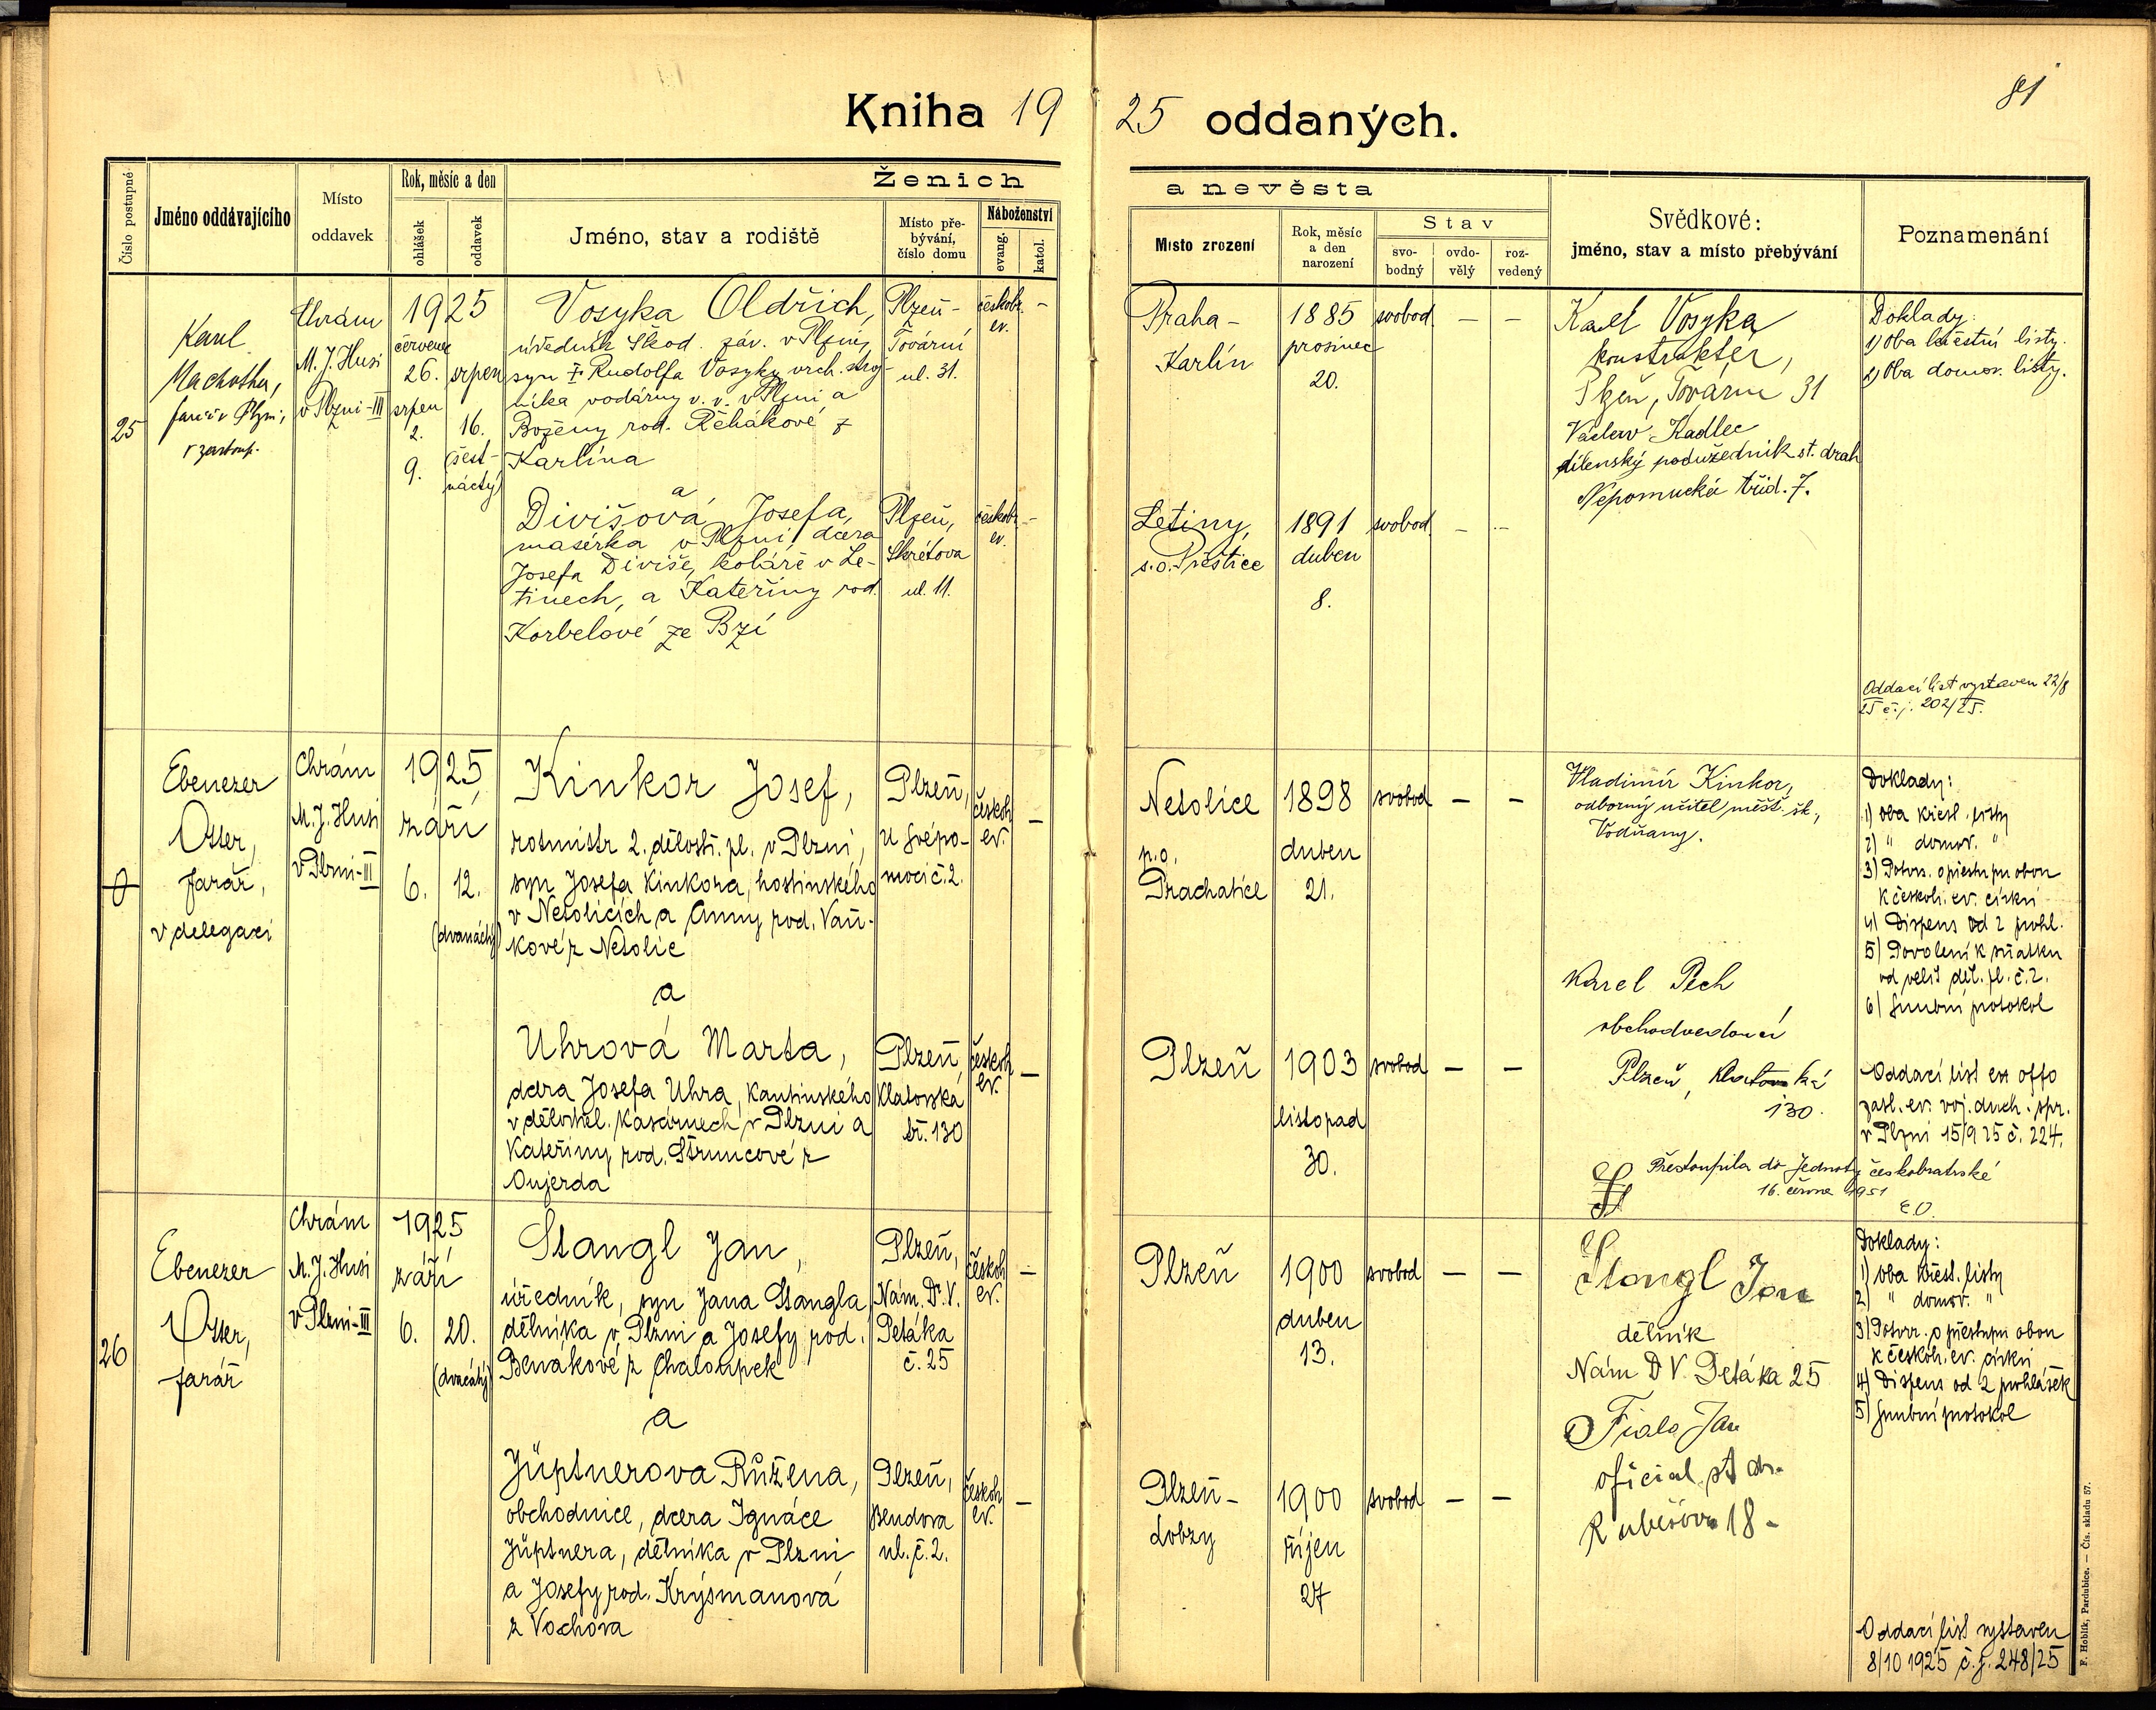 81
Kniha 1925 oddaných.
Číslo postupné
Jméno oddávajícího
Místo
oddavek
Rok, měsíc a den
ohlášek
oddavek
Ženich
Jméno, stav a rodiště
Místo pře-
bývání,
číslo domu
Náboženství
evang.
katol.
a nevěsta
Místo zrození
Rok, měsíc
a den
narození
Stav
svo-
bodný
ovdo-
vělý
roz-
vedený
Svědkové:
jméno, stav a místo přebývání
Poznamenání
25
Karel
Machotka,
farář v Plzni,
v zastoup.
Chrám
M. J. Husi
v Plzni-III
1925
červenec
26.
srpen
2.
9.
srpen
16.
(šest-
náctý)
Vosyka Oldřich,
úředník Škod. záv. v Plzni,
syn † Rudolfa Vosyky vrch. stroj-
níka vodárny v. v. v Plzni a
Boženy rod. Řehákové z
Karlína
Plzeň-
Tovární
ul. 31.
českobr.
ev.
–
Praha-
Karlín
1885
prosinec
20.
svobod.
–
–
Karel Vosyka
konstruktér,
Plzeň, Tovární 31
Václav Kadlec
dílenský podúředník st. drah
Nepomucká tříd. 7.
Doklady:
1) Oba křestní listy.
2) Oba domov. listy.
a
Divišová Josefa,
masérka v Plzni dcera
Josefa Diviše, koláře v Le-
tinech, a Kateřiny rod.
Korbelové ze Bzí
Plzeň,
Skrétova
ul. 11.
českobr.
ev.
–
Letiny,
s.o. Přeštice
1891
duben
8.
svobod.
–
–
Oddací list vystaven 22/8
25 č. j. 202/25.
Ebenezer
Otter,
farář,
v delegaci
Chrám
M. J. Husi
v Plzni-III
1925
září
6.
12.
(dvanáctý)
Kinkor Josef,
rotmistr 2. dělostř. pl. v Plzni,
syn Josefa Kinkora, hostinského
v Netolicích a Anny rod. Vaň-
kové z Netolic
Plzeň,
U Svépo-
moci č. 2.
českob.
ev.
–
Netolice
p.o.
Prachatice
1898
duben
21.
svobod
–
–
Vladimír Kinkor,
odborný učitel měšť. šk.,
Vodňany.
Karel Pech
obchodvedoucí
Plzeň, Klatovská
130.
Doklady:
1) oba křest. listy
2) " domov. "
3) Potvrz. o přestupu obou
k českob. ev. církvi
4) Dispens od 2 prohl.
5) Povolení k sňatku
od velit. děl. pl. č. 2.
6) Snubní protokol
a
Uhrová Marta,
dcera Josefa Uhra, kantinského
v dělostřel. kasárnech v Plzni a
Kateřiny rod. Štruncové z
Plzeň,
Klatovská
tř. 130
českob.
ev.
–
Plzeň
1903
listopad
30.
svobod
–
–
Oddací list ex offo
zasl. ev. voj. duch. spr.
v Plzni 15/9 25 č. 224.
Přestoupila do Jednoty českobratrské
16. června 1951
26
Ebenezer
Otter,
farář
Chrám
M. J. Husi
v Plzni-III
1925
září
6.
20.
(dvacátý)
Stangl Jan,
úředník, syn Jana Stangla
dělníka v Plzni a Josefy rod.
Benákové z Chaloupek
Plzeň,
Nám. Dr. V.
Petáka
č. 25
českob.
ev.
–
Plzeň
1900
duben
13.
svobod
–
–
Stangl Jan
dělník
Nám D V. Petáka 25
Fiala Jan
oficial st dr.
Rubešova 18-
Doklady:
1) oba křest. listy
2) " domov. "
3) Potvrz. o přestupu obou
k českob. ev. církvi
4) Dispens od 2 prohlášek
5) Snubní protokol
a
Jüptnerova Růžena,
obchodnice, dcera Ignáce
Jüptnera, dělníka v Plzni
a Josefy rod. Krýsmanová
z Vochova
Plzeň,
Bendova
ul. č. 2.
českob.
ev.
–
Plzeň-
Lobzy
1900
říjen
27
svobod
–
–
Oddací list vystaven
8/10 1925 č. j. 248/25
F. Hoblík, Pardubice. — Čís. skladu 57.